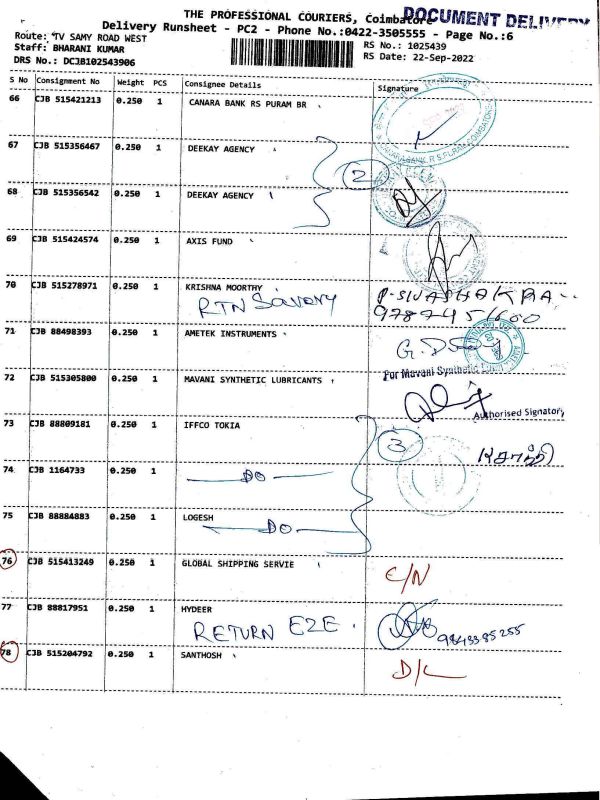 THE PROFESSIONAL COURIERS, Coimbatore
DOCUMENT DELIVERY
Delivery Runsheet - PC2 - Phone No.:0422-3505555 - Page No.:6
Route: TV SAMY ROAD WEST
RS No.: 1025439
Staff: BHARANI KUMAR
RS Date: 22-Sep-2022
DRS No.: DCJB102543906
S No Consignment No Weight PCS Consignee Details Signature
66 CJB 515421213 0.250 1 CANARA BANK RS PURAM BR
67 CJB 515356467 0.250 1 DEEKAY AGENCY
2
68 CJB 515356542 0.250 1 DEEKAY AGENCY
69 CJB 515424574 0.250 1 AXIS FUND
70 CJB 515278971 0.250 1 KRISHNA MOORTHY
RTN Savory
71 CJB 88498393 0.250 1 AMETEK INSTRUMENTS
For Mavani Synthetic
72 CJB 515305800 0.250 1 MAVANI SYNTHETIC LUBRICANTS
Authorised Signatory
73 CJB 88809181 0.250 1 IFFCO TOKIA
3
74 CJB 1164733 0.250 1 DO
75 CJB 88884883 0.250 1 LOGESH
DO
76 CJB 515413249 0.250 1 GLOBAL SHIPPING SERVIE
C/N
77 CJB 88817951 0.250 1 HYDEER
RETURN EZE . 9843385255
78 CJB 515204792 0.250 1 SANTHOSH
D/L